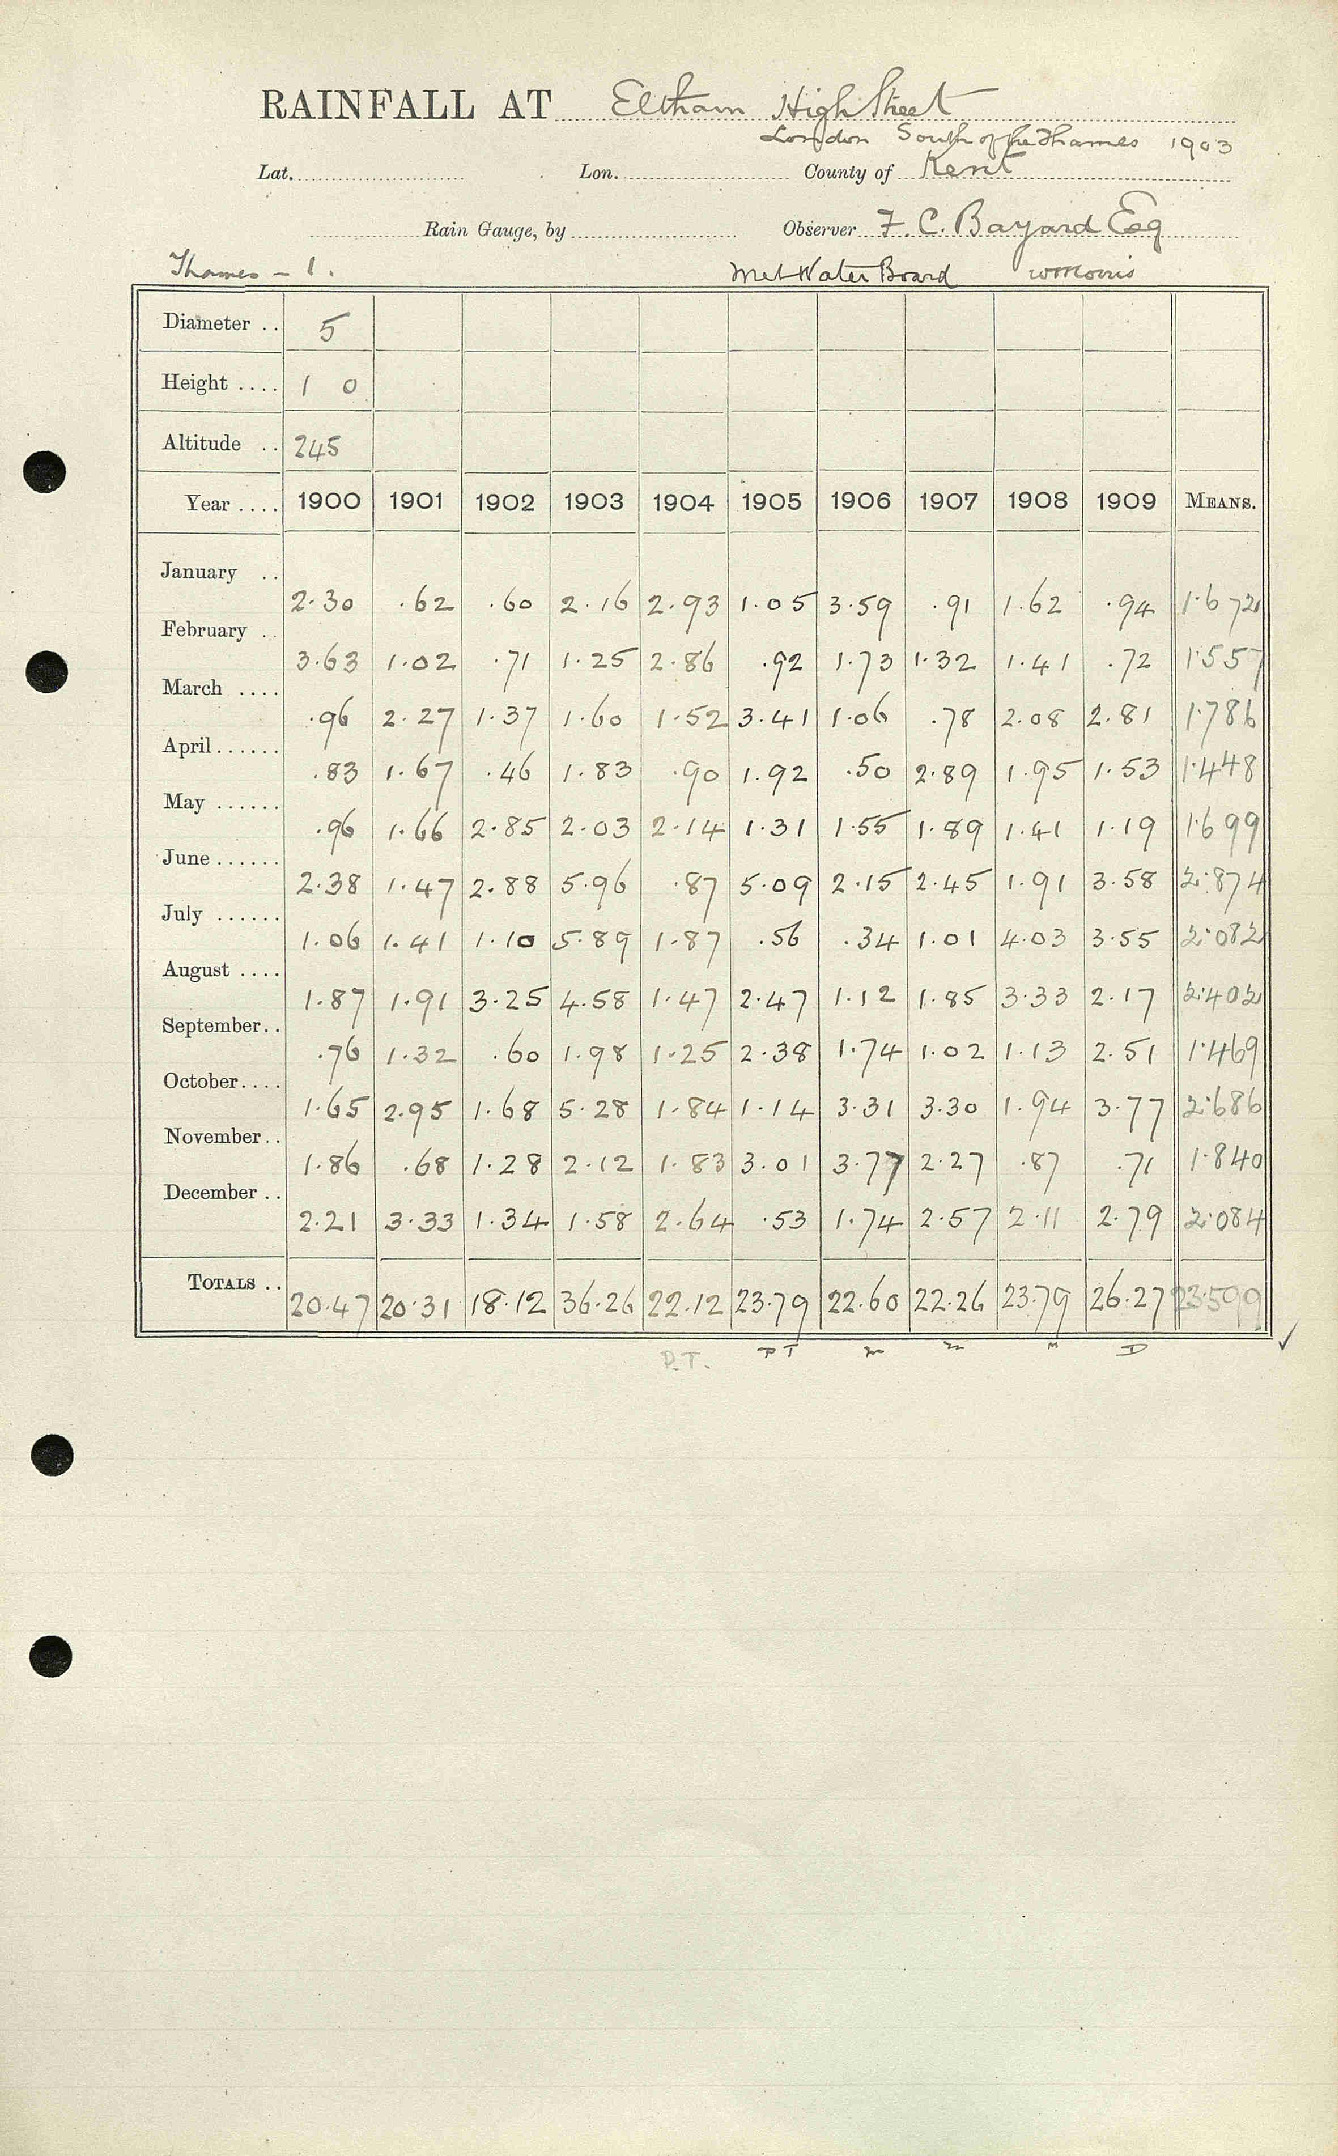 RAINFALL AT Eltham High Street
London South of the Thames 1903
Lat. Lon. County of Kent
Rain Gauge, by Observer F. C. Bayard Esq
Thames - 1. Met Water Board W Morris
Diameter .. 5
Height .... 1 0
Altitude .. 245
Year .... 1900 1901 1902 1903 1904 1905 1906 1907 1908 1909 MEANS.
January .. 2.30 .62 .60 2.16 2.93 1.05 3.59 .91 1.62 .94 1.672
February .. 3.63 1.02 .71 1.25 2.86 .92 1.73 1.32 1.41 .72 1.557
March .... .96 2.27 1.37 1.60 1.52 3.41 1.06 .78 2.08 2.81 1.786
April...... .83 1.67 .46 1.83 .90 1.92 .50 2.89 1.95 1.53 1.448
May ...... .96 1.66 2.85 2.03 2.14 1.31 1.55 1.89 1.41 1.19 1.699
June...... 2.38 1.47 2.88 5.96 .87 5.09 2.15 2.45 1.91 3.58 2.874
July ...... 1.06 1.41 1.10 5.89 1.87 .56 .34 1.01 4.03 3.55 2.082
August .... 1.87 1.91 3.25 4.58 1.47 2.47 1.12 1.85 3.33 2.17 2.402
September.. .76 1.32 .60 1.98 1.25 2.38 1.74 1.02 1.13 2.51 1.469
October.... 1.65 2.95 1.68 5.28 1.84 1.14 3.31 3.30 1.94 3.77 2.686
November.. 1.86 .68 1.28 2.12 1.83 3.01 3.77 2.27 .87 .71 1.840
December .. 2.21 3.33 1.34 1.58 2.64 .53 1.74 2.57 2.11 2.79 2.084
TOTALS .. 20.47 20.31 18.12 36.26 22.12 23.79 22.60 22.26 23.79 26.27 23.599
P.T. PT m m M D ✓